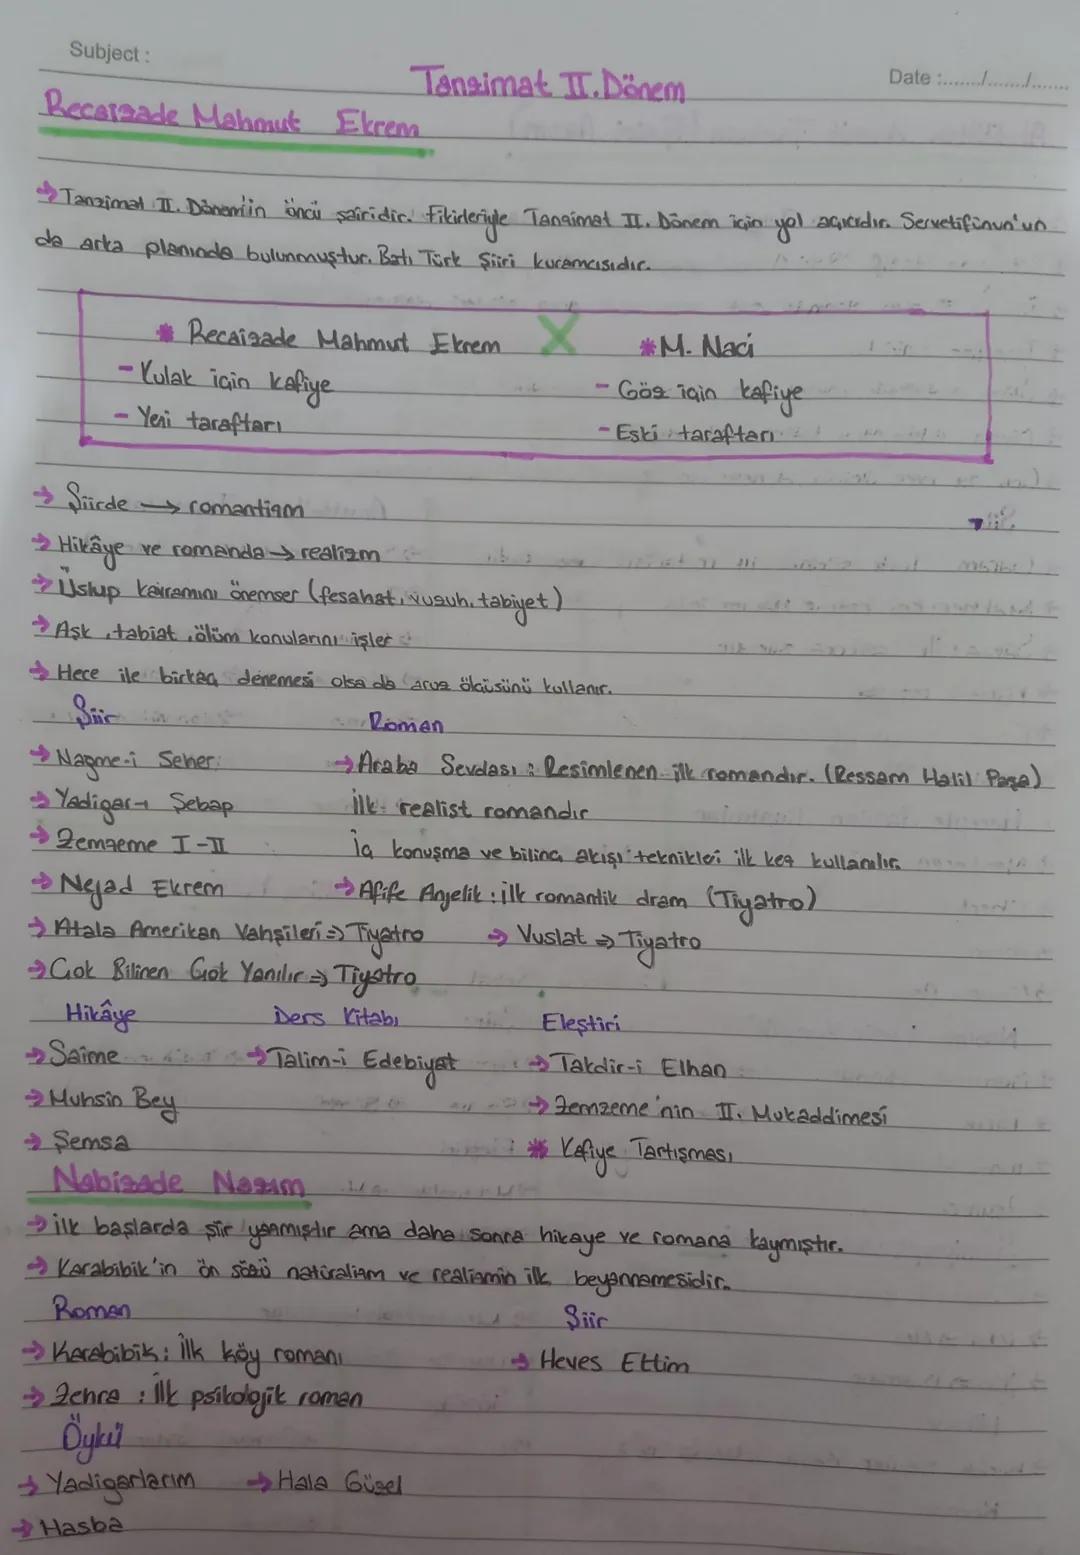 Subject :
Tanzimat II. Dönem
Date :......./......./.......
Recaizade Mahmut Ekrem
→ Tanzimat II. Dönem'in öncü şairidir. Fikirleriyle Tanzimat II. Dönem için yol açıcıdır. Servetifünun'un
da arka planında bulunmuştur. Batı Türk Şiiri kuramcısıdır.
* Recaizade Mahmut Ekrem X * M. Naci
- Kulak için kafiye - Göz için kafiye
- Yeni taraftarı - Eski taraftarı
→ Şiirde → romantizm
→ Hikâye ve romanda → realizm
→ Üslup kavramını önemser (fesahat, vuzuh, tabiyet)
→ Aşk, tabiat, ölüm konularını işler
→ Hece ile birkaç denemesi olsa da aruz ölçüsünü kullanır.
Şiir Roman
→ Nağme-i Seher → Araba Sevdası : Resimlenen ilk romandır. (Ressam Halil Paşa)
→ Yadigar-ı Şebap İlk realist romandır
→ Zemzeme I-II İç konuşma ve bilinç akışı teknikleri ilk kez kullanılır.
→ Nejad Ekrem → Afife Anjelik : ilk romantik dram (Tiyatro)
→ Atala Amerikan Vahşileri ⇒ Tiyatro → Vuslat ⇒ Tiyatro
→ Çok Bilinen Çok Yanılır ⇒ Tiyatro
Hikâye Ders Kitabı Eleştiri
→ Saime → Talim-i Edebiyat → Takdir-i Elhan
→ Muhsin Bey → Zemzeme'nin II. Mukaddimesi
→ Şemsa * Kafiye Tartışması
Nabizade Nazım
→ ilk başlarda şiir yazmıştır ama daha sonra hikaye ve romana kaymıştır.
→ Karabibik'in ön sözü natüralizm ve realizmin ilk beyannamesidir.
Roman Şiir
→ Karabibik : İlk köy romanı → Heves Ettim
→ Zehra : İlk psikolojik roman
Öykü
→ Yadigarlarım → Hala Güzel
→ Hasba